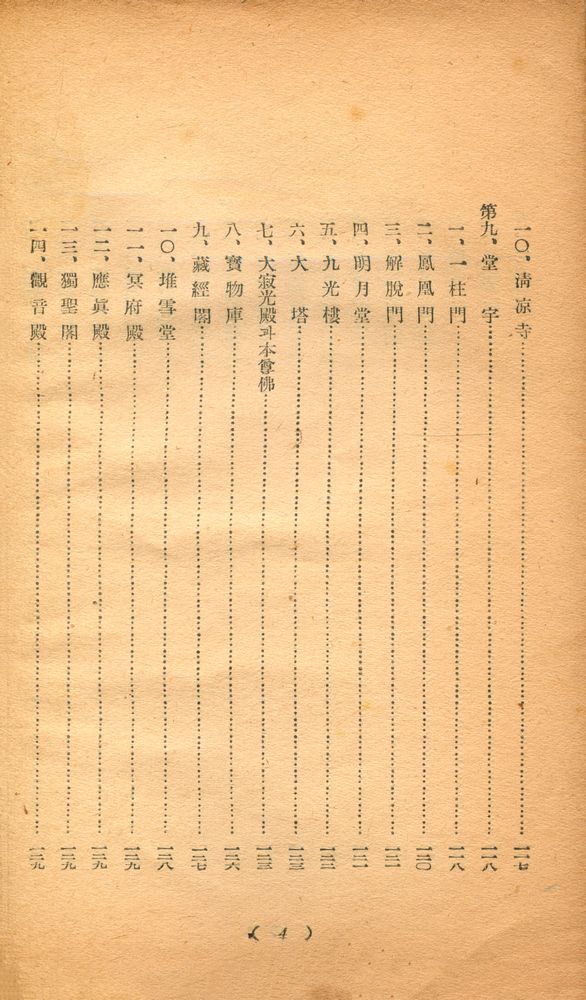 一〇、淸凉寺……………一一七
第九、堂宇……………一一八
一、一柱門……………一一八
二、鳳凰門……………一二〇
三、解脫門……………一二一
四、明月堂……………一二一
五、九光樓……………一二二
六、大塔……………一二三
七、大寂光殿과本尊佛……………一二三
八、寶物庫……………一二六
九、藏經閣……………一二七
一〇、堆雪堂……………一二八
一一、冥府殿……………一二九
一二、應眞殿……………一二九
一三、獨聖閣……………一二九
一四、觀音殿……………一二九
( 4 )